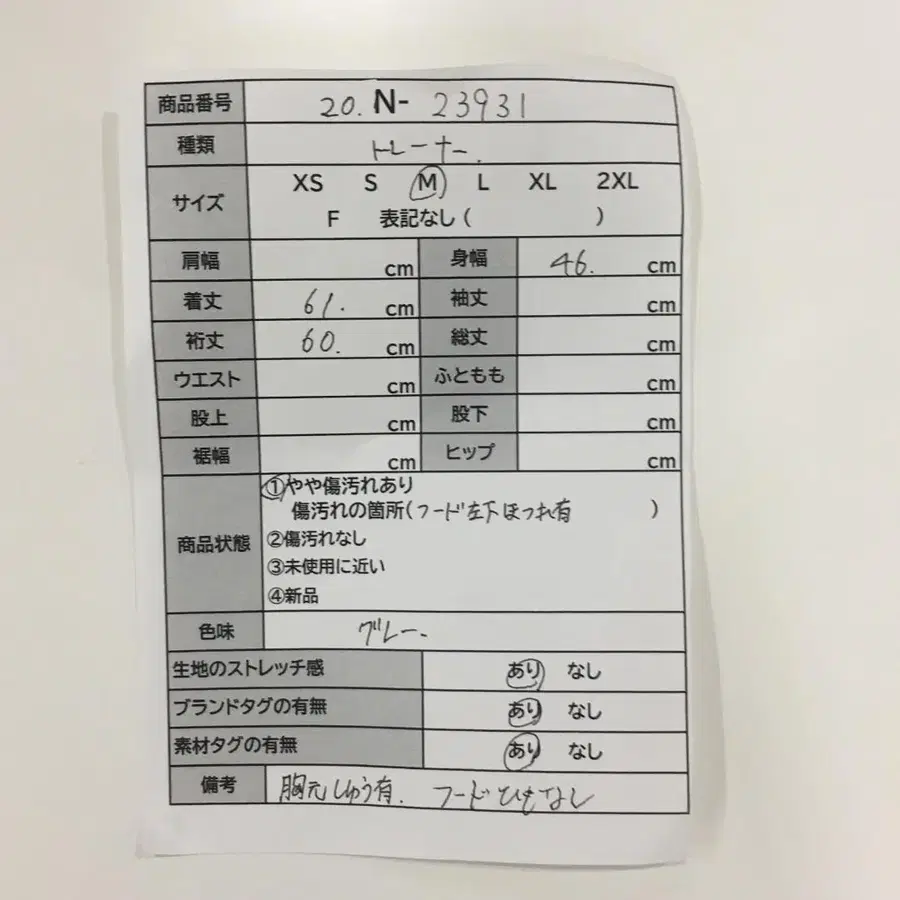 商品番号 20. N- 23931
種類 トレーナー.
サイズ XS S M L XL 2XL
F 表記なし ( )
肩幅 cm 身幅 46. cm
着丈 61. cm 袖丈 cm
裄丈 60. cm 総丈 cm
ウエスト cm ふともも cm
股上 cm 股下 cm
裾幅 cm ヒップ cm
商品状態 ①やや傷汚れあり
傷汚れの箇所(フード左下ほつれ有 )
②傷汚れなし
③未使用に近い
④新品
色味 グレー.
生地のストレッチ感 あり なし
ブランドタグの有無 あり なし
素材タグの有無 あり なし
備考 胸元ししゅう有. フードひもなし